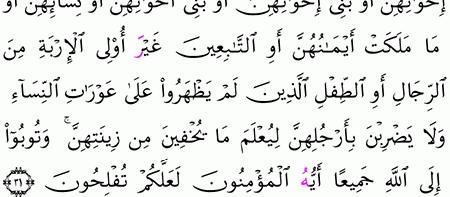 إِخْوَٰنِهِنَّ أَوْ بَنِىٓ إِخْوَٰنِهِنَّ أَوْ بَنِىٓ أَخَوَٰتِهِنَّ أَوْ نِسَآئِهِنَّ أَوْ
مَا مَلَكَتْ أَيْمَٰنُهُنَّ أَوِ ٱلتَّٰبِعِينَ غَيْرِ أُو۟لِى ٱلْإِرْبَةِ مِنَ
ٱلرِّجَالِ أَوِ ٱلطِّفْلِ ٱلَّذِينَ لَمْ يَظْهَرُوا۟ عَلَىٰ عَوْرَٰتِ ٱلنِّسَآءِ
وَلَا يَضْرِبْنَ بِأَرْجُلِهِنَّ لِيُعْلَمَ مَا يُخْفِينَ مِن زِينَتِهِنَّ ۚ وَتُوبُوٓا۟
إِلَى ٱللَّهِ جَمِيعًا أَيُّهَ ٱلْمُؤْمِنُونَ لَعَلَّكُمْ تُفْلِحُونَ ٣١